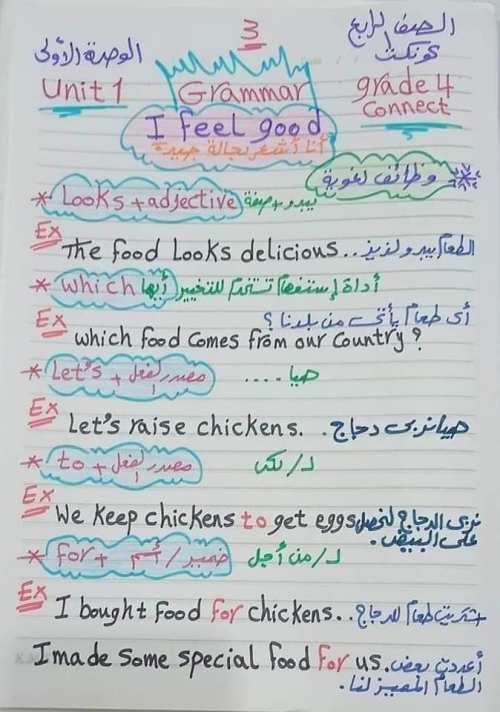 3
الصف الرابع
كونكت
grade 4
Connect
الوحدة الأولى
Unit 1
Grammar
I feel good
أنا أشعر بحالة جيدة
* وظائف لغوية
* Looks + adjective يبدو + صفة
Ex The food Looks delicious.. الطعام يبدو لذيذ
* which أيها أداة إستفهام تستخدم للتخيير
Ex which food comes from our country? أى طعام يأتى من بلدنا ؟
* Let's + مصدر الفعل هيا ....
Ex Let's raise chickens. هيا نربى دجاج.
* to + مصدر الفعل لـ / لكى
Ex We keep chickens to get eggs نربى الدجاج لنحصل على البيض.
* for + ضمير / اسم لـ / من أجل
Ex I bought food for chickens.. اشتريت طعام للدجاج
I made some special food for us. أعددت بعض الطعام المميز لنا.